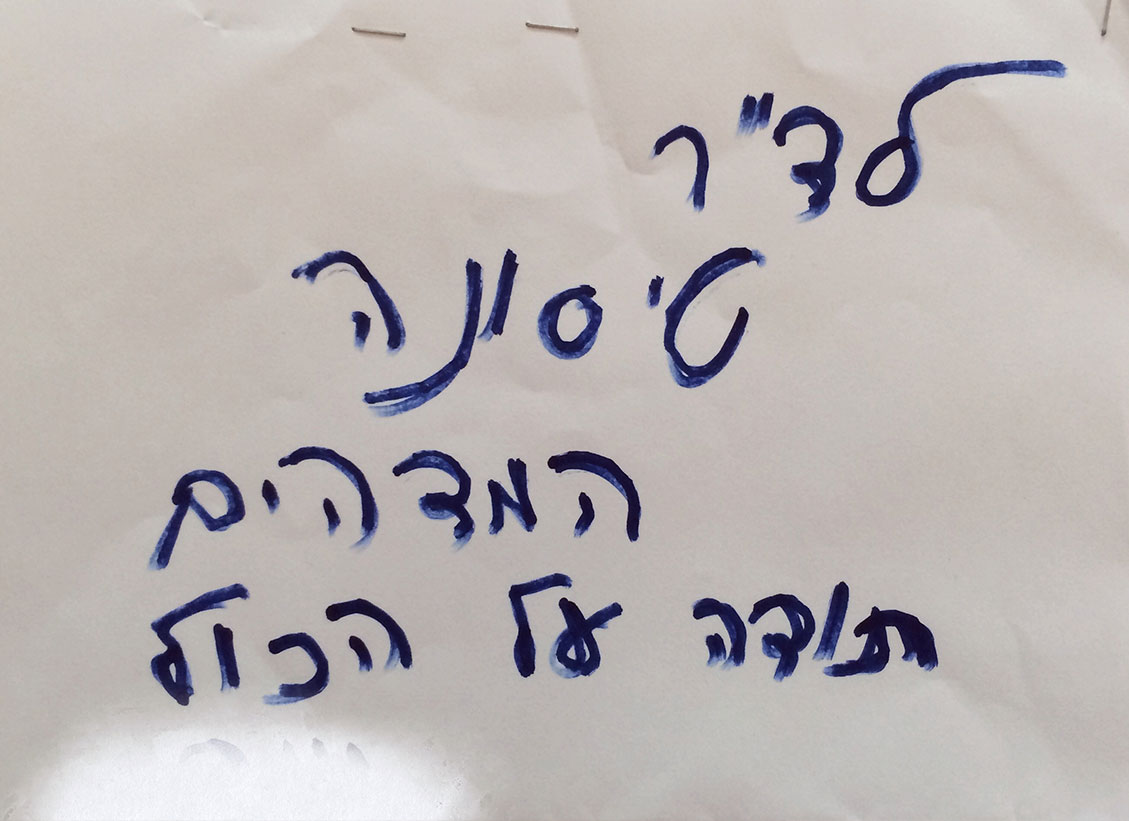 לד"ר
טיסונה
המדהים
תודה על הכול